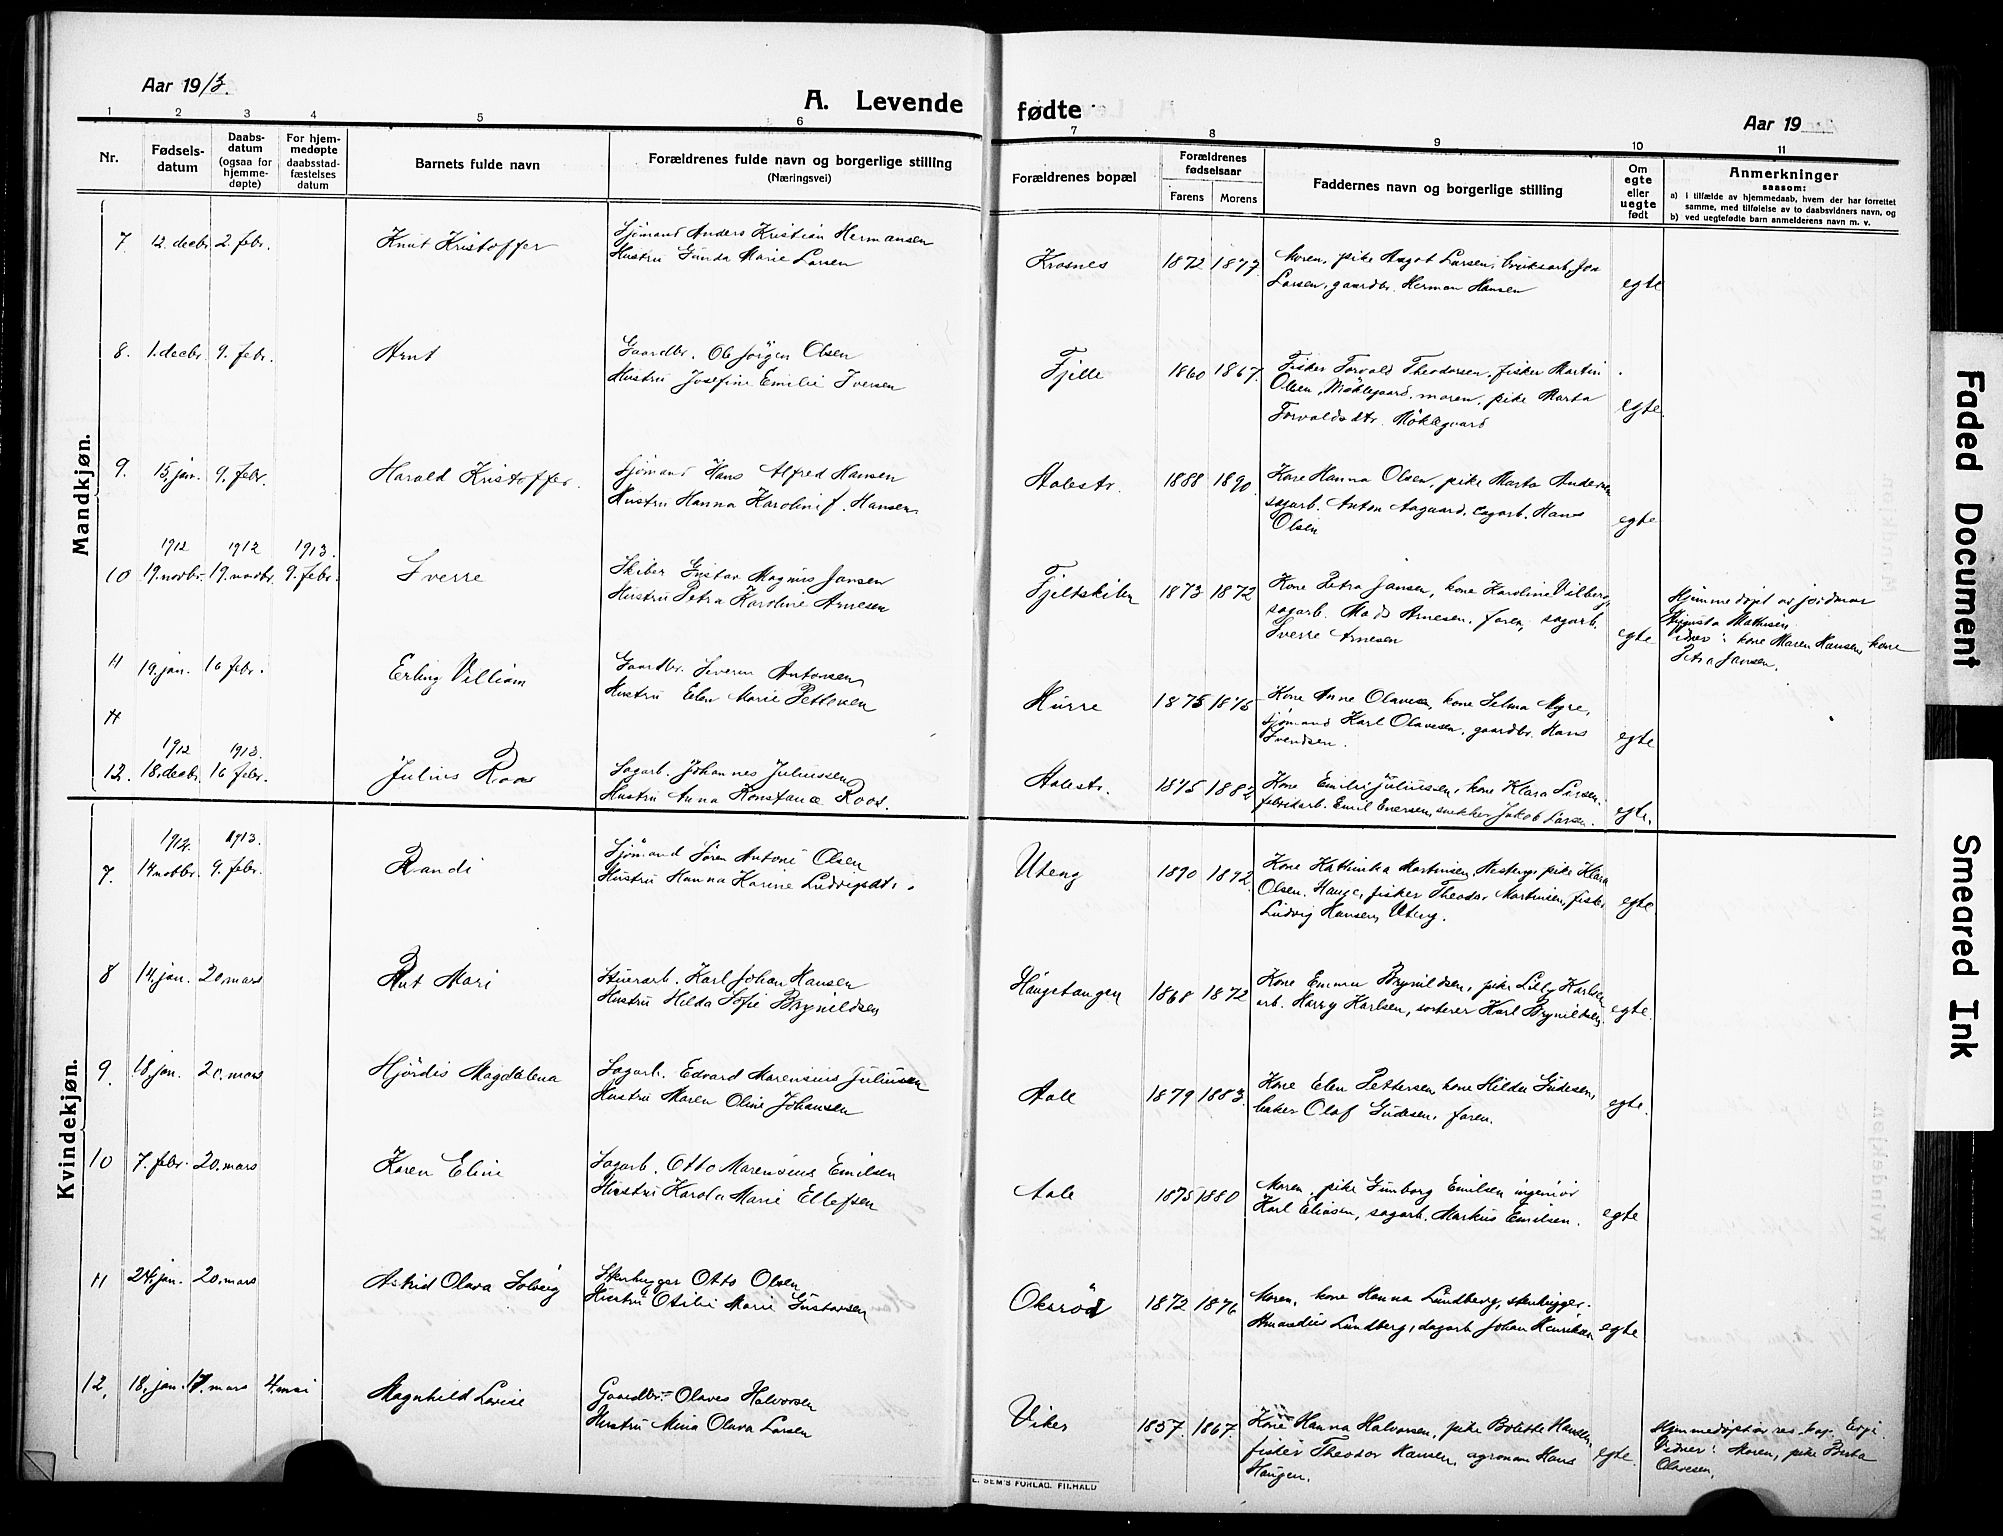 Aar 1913.
A. Levende
fødte
Aar 19
1 2 3 4 5 6
7 8 9 10 11
Nr.
Fødselsdatum
Daabsdatum
(ogsaa for
hjemmedøpte)
For hjemmedøpte
daabsstadfæstelses
datum
Barnets fulde navn
Forældrenes fulde navn og borgerlige stilling
(Næringsvei)
Forældrenes bopæl
Forældrenes
fødselsaar
Farens Morens
Faddernes navn og borgerlige stilling
Om
egte
eller
uegte
født
Anmerkninger
saasom:
a) i tilfælde av hjemmedaab, hvem der har forrettet
samme, med tilføielse av to daabsvidners navn, og
b) ved uegtefødte barn anmelderens navn m. v.
Mandkjøn.
7 12. decbr. 2. febr. Knut Kristoffer
Sjømand Anders Kristian Hermansen
Hustru Gunda Marie Larsen
Krosnes 1872 1877.
Moren, pike Aagot Larsen, bruksarb. Joa
Larsen, gaardbr. Herman Hansen
egte
8. 1. decbr. 9. febr. Arnt
Gaardbr. Ole Jörgen Olsen
Hustru Josefine Emilie Iversen
Fjelle 1860 1867.
Fisker Torvald Theodorsen, fisker Martin
Olsen, Møklegaard, moren, pike Marta
Torvaldsdtr. Møklegaard
egte.
9. 15. jan. 9. febr. Harald Kristoffer.
Sjømand Hans Alfred Hansen
Hustru Hanna Karoline f. Hansen
Aalestr. 1888 1890
Kone Hanna Olsen, pike Marta Andersen
sagarb. Anton Aagaard, sagarb. Hans
Olsen
egte
1912 1912 1913.
10 19. novbr. 19. novbr. 9. febr. Sverre
Skiber Gustav Magnus Jansen
Hustru Petra Karoline Arnesen
Fjeldskilen 1873 1872
Kone Petra Jansen, kone Karoline Vilberg,
sagarb. Mads Arnesen, faren, sagarb.
Sverre Arnesen
egte
Hjemmedøpt av jordmor
Augusta Mathisen
Vidner: kone Maren Hansen, kone
Petra Jansen.
11 19. jan. 16 febr. Erling Villiam
Gaardbr. Severin Antonsen
Hustru Elen Marie Pettersen
Hurre 1875 1875
Kone Anne Olavesen, kone Selma Myre,
sjømand Karl Olavesen, gaardbr. Hans
Svendsen.
egte
11
1912 1913.
12. 18. decbr. 16 febr. Julius Roos
Sagarb. Johannes Juliussen
Hustru Anna Konstance Roos.
Aalestr. 1875 1882
Kone Emilie Juliussen, kone Klara Larsen.
fabrikarb. Emil Evensen, snekker Jakob Larsen.
egte.
Kvindekjøn.
1912. 1913.
7. 14 novbr. 9. febr. Randi
Sjømand Søren Antoni Olsen
Hustru Hanna Karine Ludvigsdtr.
Uteng 1890 1892.
Kone Kathinka Martinsen, pike Klara
Olsen. Hauge, fisker Theodor Martinsen, fisker
Ludvig Hansen, Uteng.
egte
8 14. jan. 20. mars Rut Mari
Stuerarb. Karl Johan Hansen
Hustru Hilda Sofie Brynildsen
Haugstangen 1868 1872
Kone Emma Brynildsen, pike Lilly Karlsen
arb. Harry Karlsen, sorterer Karl Brynildsen.
egte.
9. 18. jan. 20. mars Hjördis Magdalena
Sagarb. Edvard Marensius Juliussen
Hustru Maren Oline Johansen
Aale 1879 1883.
Kone Elen Pettersen, kone Hilda Gudesen,
baker Olaf Gudesen, faren.
egte.
10 7. febr. 20. mars Karen Eline
Sagarb. Otto Marensius Emilsen
Hustru Karola Marie Ellefsen
Aale 1875 1880
Moren, pike Gunborg Emilsen ingeniør
Karl Eliasen, sagarb. Markus Emilsen.
egte
11 24. jan. 20. mars Astrid Olava Solveig
Stenhugger Otto Olsen
Hustru Otilie Marie Gustavsen
Oksröd 1872 1876
Moren, kone Hanna Lundberg, stenhugger
Amandus Lundberg, dagarb. Johan Henriksen
egte
12. 18. jan. 17. mars 4. mai Magnhild Lovise
Gaardbr. Olaves Halvorsen
Hustru Mina Olava Larsen
Viker 1857. 1867.
Kone Hanna Halvorsen, pike Bolette Hansen,
fisker Theodor Hansen, agronom Hans
Haugen.
egte.
Hjemmedøpt av res. kap.
Vidner: Moren, pike Berta
Olavesen.
SEM'S FORLAG. FR.HALD
Faded Document
Smeared Ink